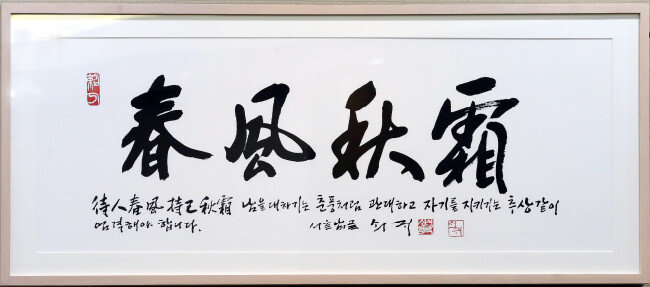 春風秋霜
待人春風 持己秋霜 남을 대하기는 춘풍처럼 관대하고 자기를 지키기는 추상같이
엄격해야 합니다. 쇠귀